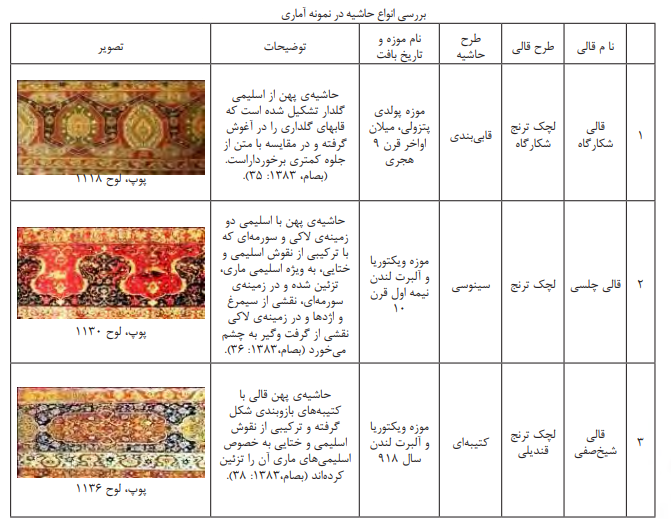 بررسی انواع حاشیه در نمونه آماری
نا م قالی
طرح قالی
طرح
حاشیه
نام موزه و
تاریخ بافت
توضیحات
تصویر
۱
قالی
شکارگاه
لچک ترنج
شکارگاه
قابی‌بندی
موزه پولدی
پتزولی، میلان
اواخر قرن ۹
هجری
حاشیه‌ی پهن از اسلیمی
گلدار تشکیل شده است که
قابهای گلداری را در آغوش
گرفته و در مقایسه با متن از
جلوه کمتری برخورداراست.
(بصام، ۱۳۸۳: ۳۵).
پوپ، لوح ۱۱۱۸
۲
قالی چلسی
لچک ترنج
سینوسی
موزه ویکتوریا
و آلبرت لندن
نیمه اول قرن
۱۰
حاشیه‌ی پهن با اسلیمی دو
زمینه‌ی لاکی و سورمه‌ای که
با ترکیبی از نقوش اسلیمی و
ختایی، به ویژه اسلیمی ماری،
تزئین شده و در زمینه‌ی
سورمه‌ای، نقشی از سیمرغ
و اژدها و در زمینه‌ی لاکی
نقشی از گرفت وگیر به چشم
می‌خورد (بصام،۱۳۸۳: ۳۶).
پوپ، لوح ۱۱۳۰
۳
قالی
شیخ‌صفی
لچک ترنج
قندیلی
کتیبه‌ای
موزه ویکتوریا
و آلبرت لندن
سال ۹۱۸
حاشیه‌ی پهن قالی با
کتیبه‌های بازوبندی شکل
گرفته و ترکیبی از نقوش
اسلیمی و ختایی به خصوص
اسلیمی‌های ماری آن را تزئین
کرده‌اند (بصام،۱۳۸۳: ۳۸).
پوپ، لوح ۱۱۳۶